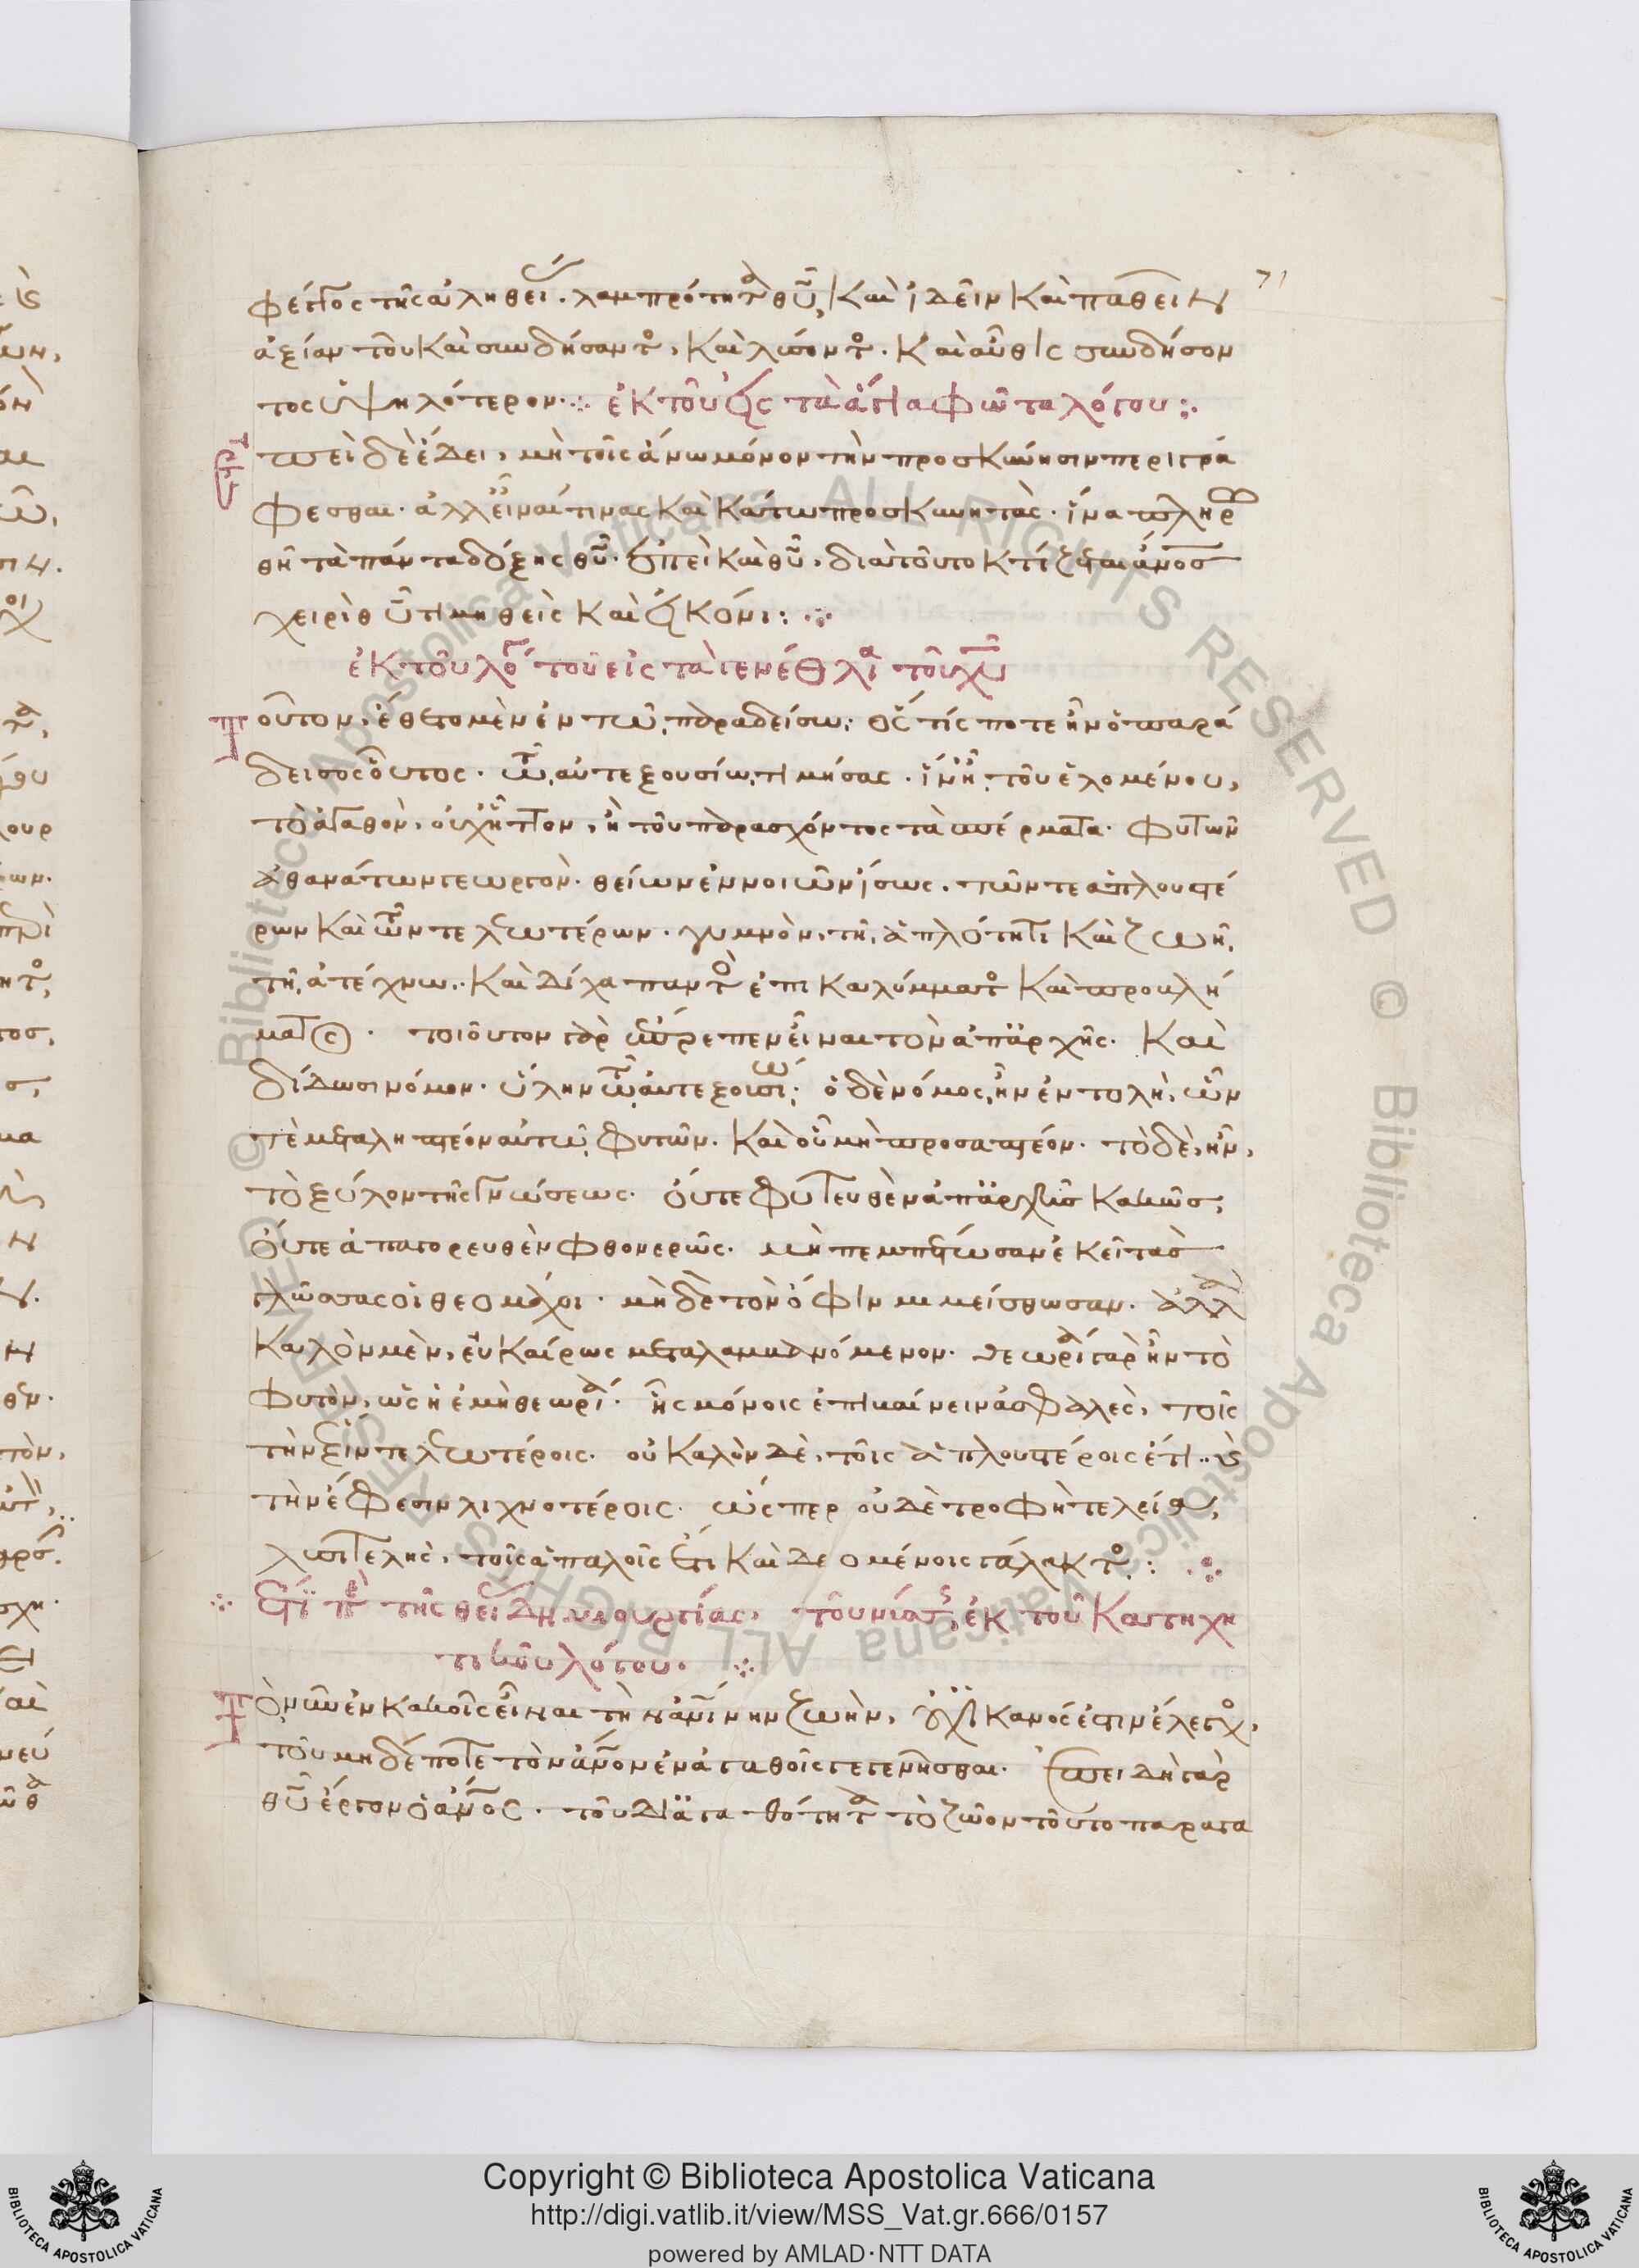 71
φέγγος τῆς ἀληθείας. λαμπρότητα θῦ, καὶ ἰδεῖν καὶ παθεῖν
ἀξίαν τοῦ καὶ συνδήσαντος, καὶ λύσοντος. καὶ αὖθις συνδήσον
τος ὑψηλότερον ⁘ ἐκ τοῦ εἰς τὰ ἅγια φῶτα λόγου :·
Ἐπεὶ δὲ ἔδει, μὴ τοῖς ἄνω μόνον τὴν προσκύνησιν περιγρά
φεσθαι. ἀλλ' εἶναί τινας καὶ κάτω προσκυνητάς. ἵνα πληρω
θῇ τὰ πάντα δόξης θῦ. ἐπεὶ καὶ θῦ. διὰ τοῦτο κτίζεται ἄνος
χειρὶ θῦ τιμηθεὶς καὶ εἰκόνι : ⁘
ἐκ τοῦ λόγου τοῦ εἰς τὰ γενέθλια τοῦ χῦ
Τοῦτον, ἔθετο μὲν ἐν τῷ παραδείσῳ· ὅς τίς ποτε ἦν ὁ παρά
δεισος οὗτος. τῷ αὐτεξουσίῳ τιμήσας. ἵν' ᾖ τοῦ ἑλομένου,
τὸ ἀγαθὸν, οὐχ ἧττον, ἢ τοῦ παρασχόντος τὰ σπέρματα. φυτῶν
ἀθανάτων γεωργὸν. θείων ἐννοιῶν ἴσως. τῶν τε ἁπλουστέ
ρων καὶ τῶν τελεωτέρων. γυμνὸν, τῇ ἁπλότητι καὶ ζωῇ,
τῇ ἀτέχνῳ. καὶ δίχα παντὸς ἐπικαλύμματος καὶ προβλή
ματος. τοιοῦτον γὰρ ἔπρεπεν εἶναι τὸν ἀπαρχῆς. καὶ
δίδωσι νόμον. ὕλην τῷ αὐτεξουσίῳ· ὁ δὲ νόμος, ἦν ἐντολὴ, ὧν
τὲ μεταληπτέον αὐτῷ φυτῶν. καὶ οὗ μὴ προσαπτέον. τὸ δὲ, ἦν,
τὸ ξύλον τῆς γνώσεως. οὔτε φυτευθὲν ἀπαρχῆς κακῶς,
οὔτε ἀπαγορευθὲν φθονερῶς. μὴ πεμπέτωσαν ἐκεῖ τὰς
γλώσσας οἱ θεομάχοι. μὴ δὲ τὸν ὄφιν μιμείσθωσαν. ἀλλὰ
καλὸν μὲν, εὐκαίρως μεταλαμβανόμενον. θεωρία γὰρ ἦν τὸ
φυτὸν, ὡς ἡ ἐμὴ θεωρία. ἧς μόνοις ἐπιβαίνειν ἀσφαλὲς, τοῖς
τὴν ἕξιν τελεωτέροις. οὐ καλὸν δὲ, τοῖς ἁπλουστέροις ἔτι. καὶ
τὴν ἔφεσιν λιχνοτέροις. ὥσπερ οὐδὲ τροφὴ τελεία,
λυσιτελὴς, τοῖς ἁπαλοῖς ἔτι καὶ δεομένοις γάλακτος : ⁘
⁘ ἔτι περὶ τῆς θείας δημιουργίας, τοῦ νύσσης, ἐκ τοῦ κατηχη
τικοῦ λόγου. ⁘
Τὸ νῦν ἐν κακοῖς εἶναι τὴν ἀνίνην ζωὴν, οὐχ ἱκανός ἐστιν ἔλεγχος,
τοῦ μηδέποτε τὸν ἄνον ἐν ἀγαθοῖς γεγενῆσθαι. Ἐπειδὴ γὰρ
θῦ ἔργον ὁ ἄνος. τοῦ δι' ἀγαθότητα τὸ ζῶον τοῦτο παραγα
Copyright © Biblioteca Apostolica Vaticana
http://digi.vatlib.it/view/MSS_Vat.gr.666/0157
powered by AMLAD·NTT DATA